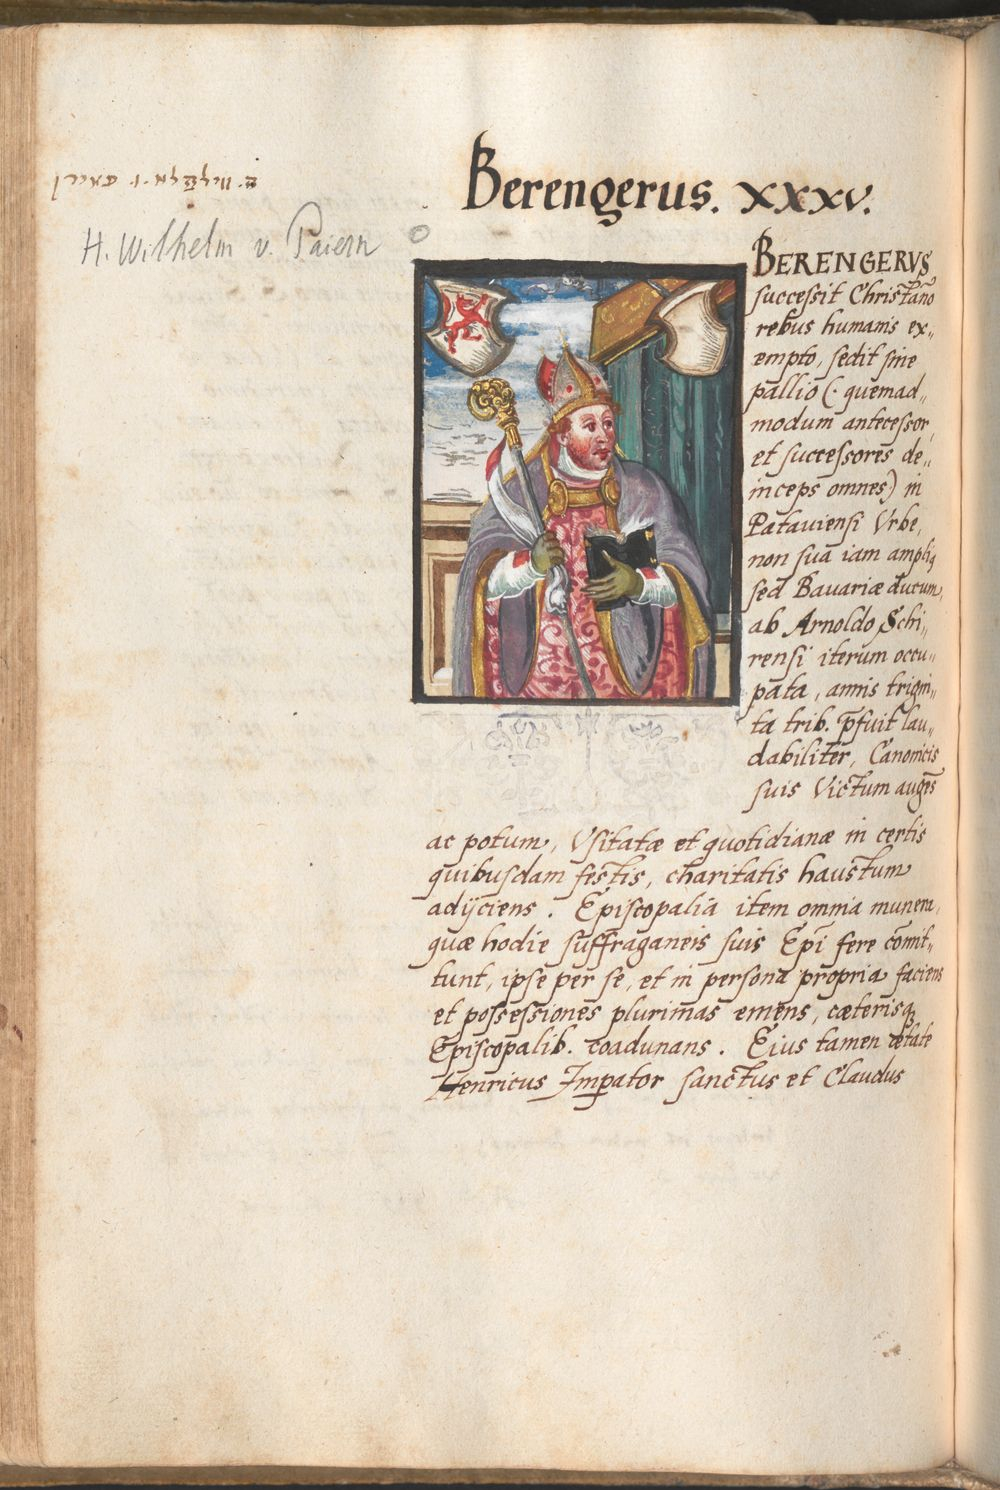 Berengerus. XXXV.
ה. ווילהלם . ו . פאירן
H. Wilhelm v. Paiern
BERENGERVS
successit Christāno
rebus humanis ex„
empto, sedit sine
pallio (. quemad„
modum antecessor,
et successores de„
inceps omnes) in
Patauiensi Vrbe,
non suā iam ampliq
sed Bauariæ ducum,
ab Arnoldo Schi„
rensi iterum occu„
pata, annis trigin„
ta trib. p̄fuit lau„
dabiliter, Canonicis
suis Victum augēs
ac potum, Vsitatæ et quotidianæ in certis
quibusdam festis, charitatis haustum
adijciens. Episcopalia item omnia munera,
quæ hodie suffraganeis suis Epī fere cōmit„
tunt, ipse per se, et in persona propria faciens
et possessiones plurimas emens, cæterisq
Episcopalib. coadunans. Eius tamen ætate
Henricus Impator sanctus et Claudus